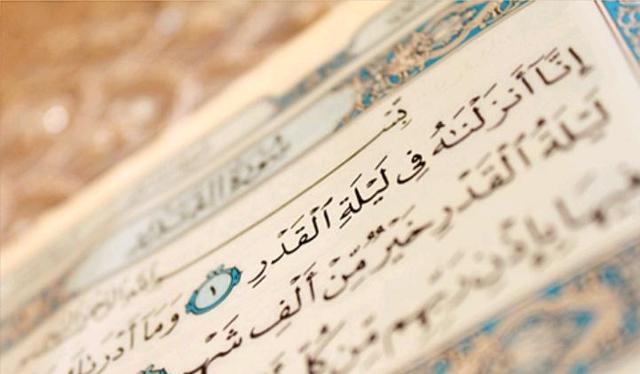 سُورَةُ الْقَدْرِ
إِنَّا أَنزَلْنَٰهُ فِى لَيْلَةِ ٱلْقَدْرِ ١ وَمَا أَدْرَىٰكَ
لَيْلَةُ ٱلْقَدْرِ خَيْرٌ مِّنْ أَلْفِ شَهْرٍ
فِيهَا بِإِذْنِ رَبِّهِم مِّن كُلِّ